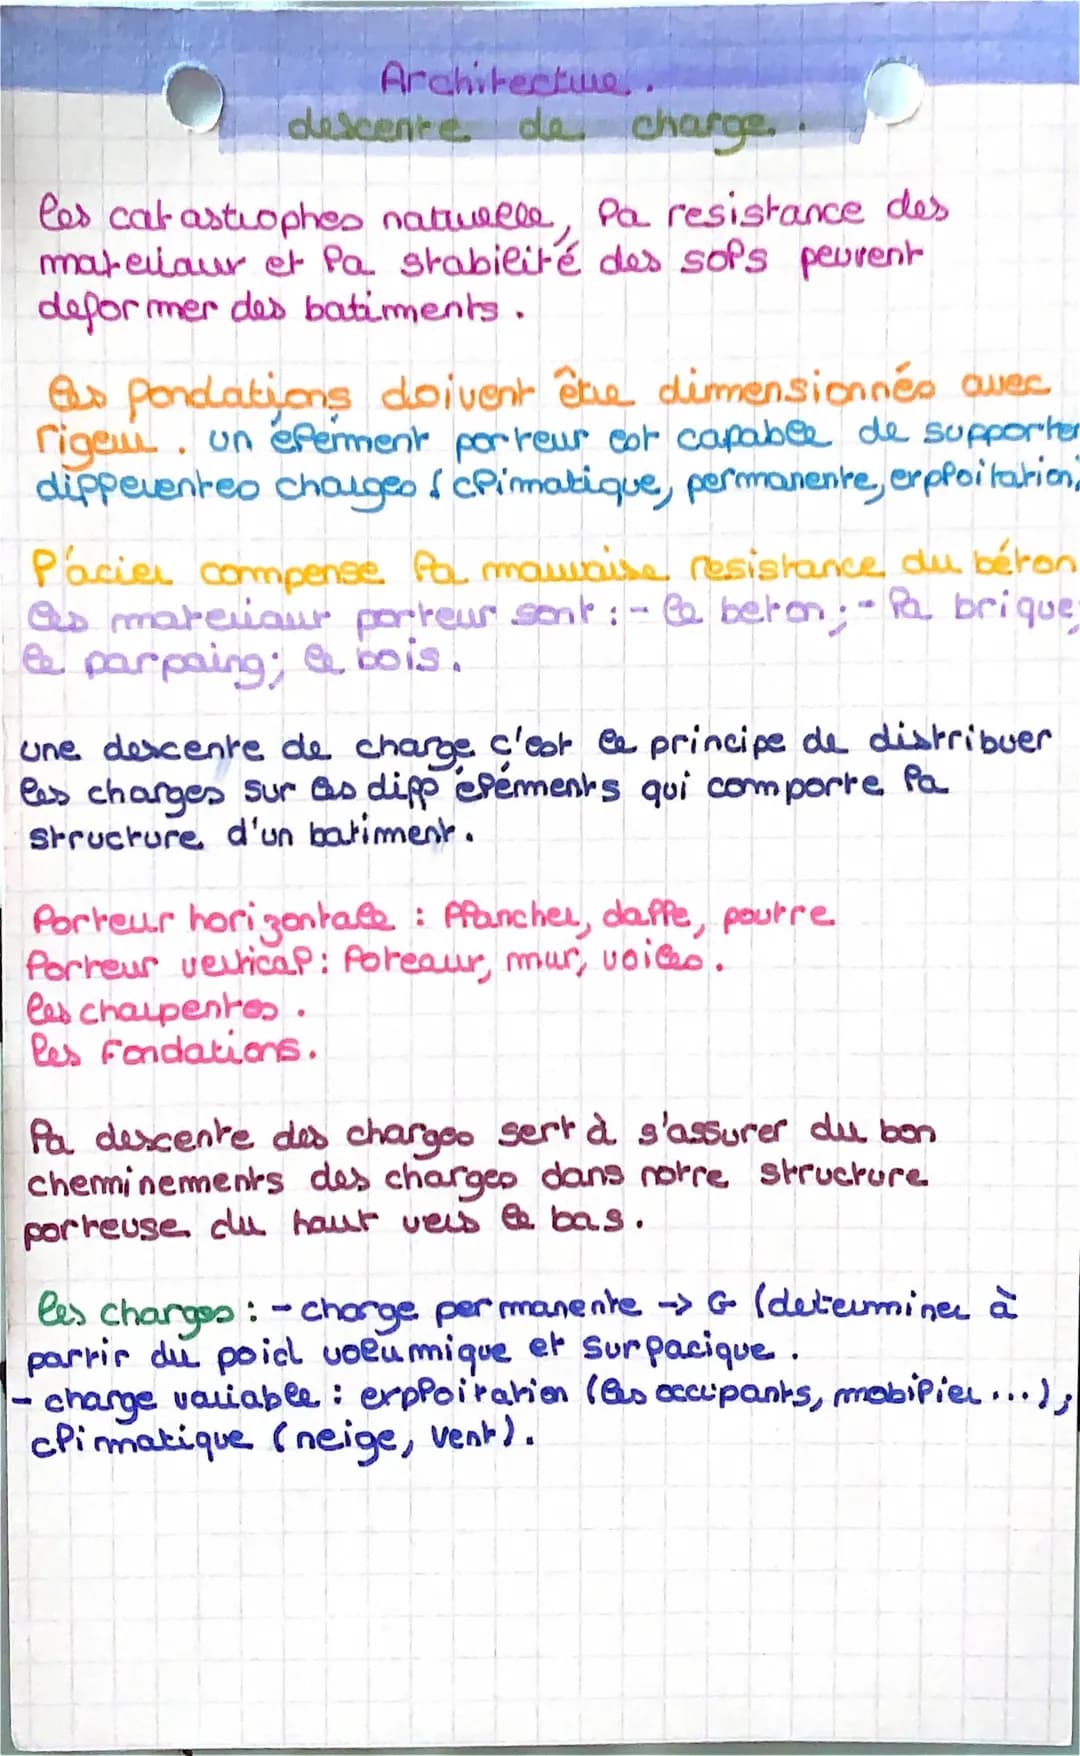 Architecture.
descente de charge.
les catastrophes naturelle, la resistance des
materiaux et la stabilité des sols peuvent
deformer des batiments.
les fondations doivent être dimensionnés avec
rigeur. un élément porteur est capable de supporter
differentes charges (climatique, permanente, exploitation,
l'acier compense la mauvaise resistance du béton
les materiaux porteur sont : - le beton ; - la brique;
le parpaing; le bois.
une descente de charge c'est le principe de distribuer
les charges sur les diff éléments qui comporte la
structure d'un batiment.
Porteur horizontale : Plancher, dalle, poutre
Porteur vertical : Poteaux, mur, voiles.
les charpentes.
les Fondations.
la descente des charges sert à s'assurer du bon
cheminements des charges dans notre structure
porteuse du haut vers le bas.
les charges : - charge permanente → G (determiner à
partir du poid volumique et surfacique.
- charge variable : exploitation (les occupants, mobilier ...);
climatique (neige, vent).